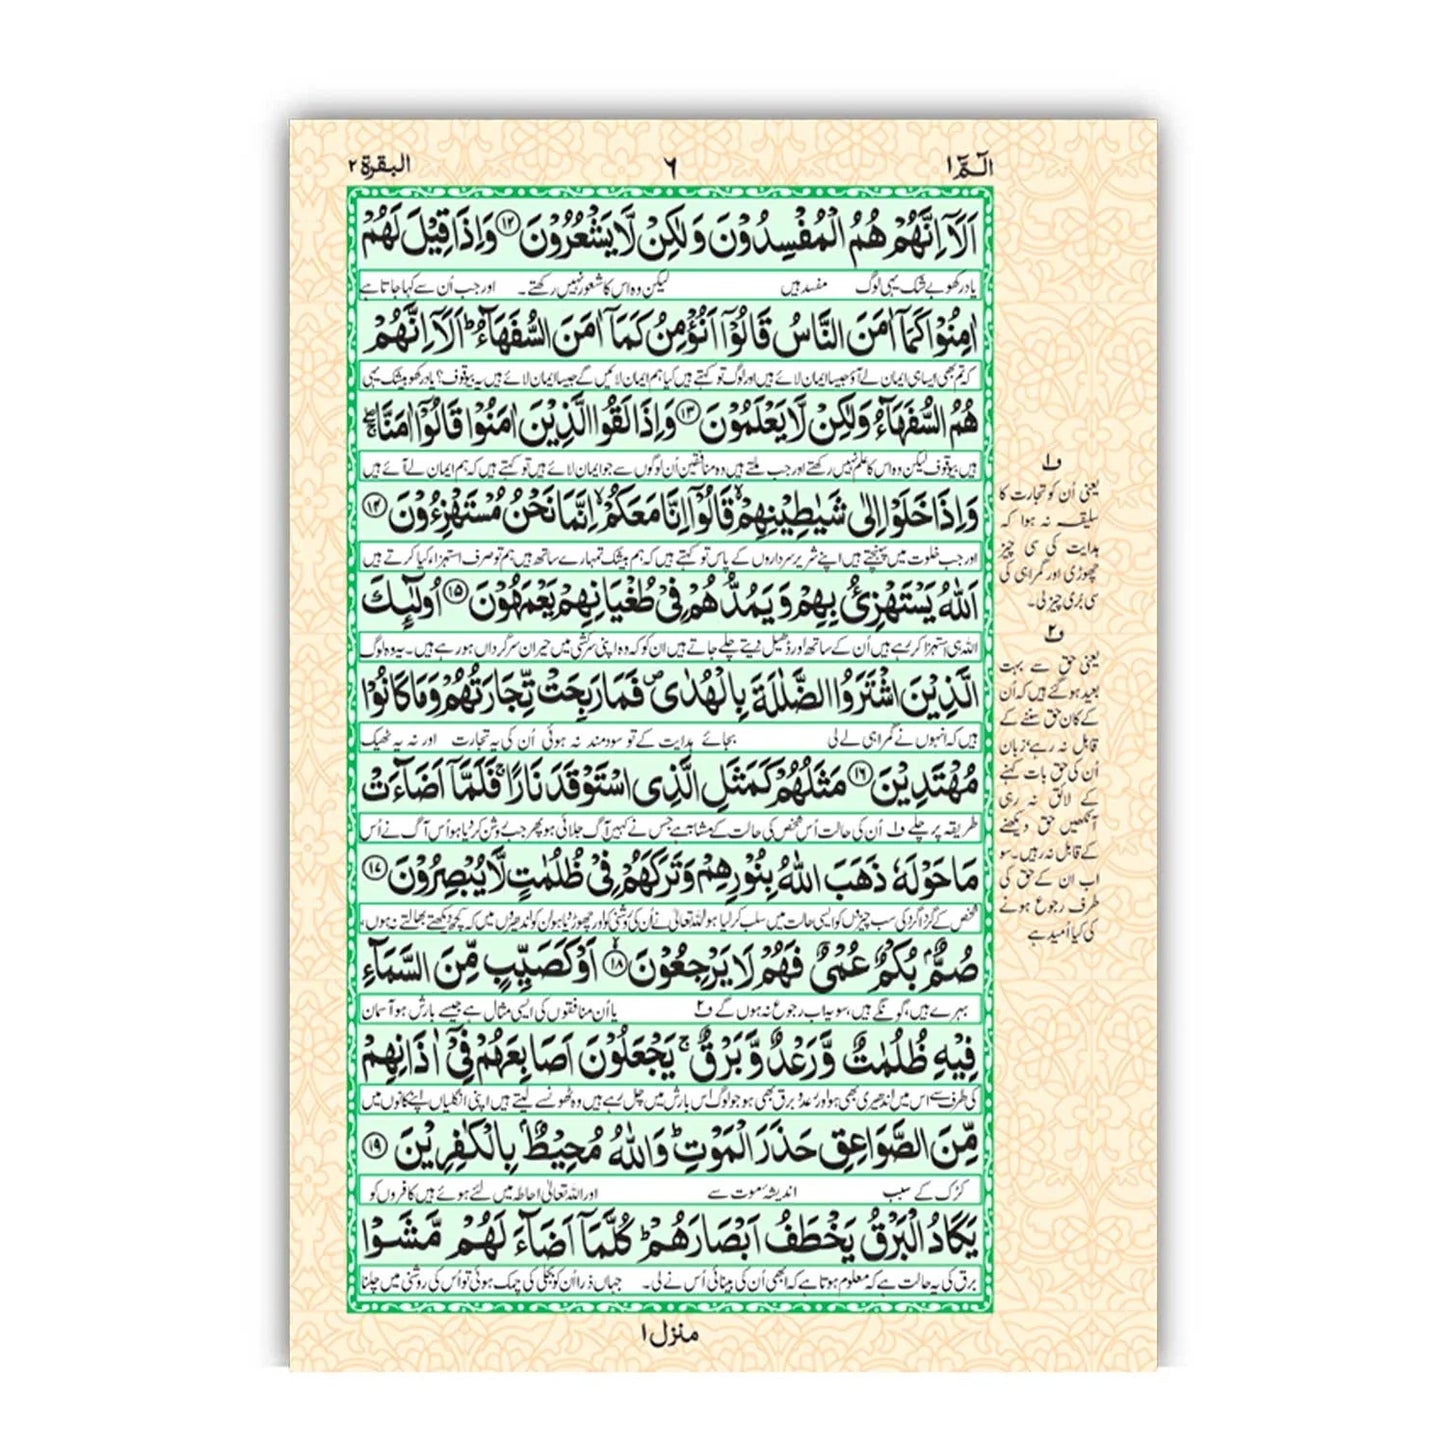 الٓمّٓ ١
٦
البقرة ٢
اَلَاۤ اِنَّهُمْ هُمُ الْمُفْسِدُوْنَ وَلٰكِنْ لَّا يَشْعُرُوْنَ ﴿١٢﴾ وَاِذَا قِيْلَ لَهُمْ
یاد رکھو بے شک یہی لوگ مفسد ہیں لیکن وہ اس کا شعور نہیں رکھتے۔ اور جب اُن سے کہا جاتا ہے
اٰمِنُوْا كَمَاۤ اٰمَنَ النَّاسُ قَالُوْۤا اَنُؤْمِنُ كَمَاۤ اٰمَنَ السُّفَهَآءُ ؕ اَلَاۤ اِنَّهُمْ
کہ تم بھی ایسا ہی ایمان لے آؤ جیسا ایمان لائے ہیں اور لوگ تو کہتے ہیں کیا ہم ایمان لائیں گے جیسا ایمان لائے ہیں یہ بیوقوف؟ یاد رکھو بیشک یہی
هُمُ السُّفَهَآءُ وَلٰكِنْ لَّا يَعْلَمُوْنَ ﴿١٣﴾ وَاِذَا لَقُوا الَّذِيْنَ اٰمَنُوْا قَالُوْۤا اٰمَنَّا
ہیں بیوقوف لیکن وہ اس کا علم نہیں رکھتے اور جب ملتے ہیں وہ منافقین اُن لوگوں سے جو ایمان لائے ہیں تو کہتے ہیں کہ ہم ایمان لے آئے ہیں
وَاِذَا خَلَوْا اِلٰى شَيٰطِيْنِهِمْ ۙ قَالُوْۤا اِنَّا مَعَكُمْ ۙ اِنَّمَا نَحْنُ مُسْتَهْزِءُوْنَ ﴿١٤﴾
اور جب خلوت میں پہنچتے ہیں اپنے شریر سرداروں کے پاس تو کہتے ہیں کہ ہم بیشک تمہارے ساتھ ہیں ہم تو صرف استہزاء کیا کرتے ہیں
اَللّٰهُ يَسْتَهْزِئُ بِهِمْ وَيَمُدُّهُمْ فِيْ طُغْيَانِهِمْ يَعْمَهُوْنَ ﴿١٥﴾ اُولٰٓئِكَ
اللہ ہی استہزا کر رہے ہیں اُن کے ساتھ اور ڈھیل دیتے چلے جاتے ہیں ان کو کہ وہ اپنی سرکشی میں حیران سرگرداں ہو رہے ہیں۔ یہ وہ لوگ
الَّذِيْنَ اشْتَرَوُا الضَّلٰلَةَ بِالْهُدٰى ۪ فَمَا رَبِحَتْ تِّجَارَتُهُمْ وَمَا كَانُوْا
ہیں کہ انہوں نے گمراہی لے لی بجائے ہدایت کے تو سود مند نہ ہوئی اُن کی یہ تجارت اور نہ یہ ٹھیک
مُهْتَدِيْنَ ﴿١٦﴾ مَثَلُهُمْ كَمَثَلِ الَّذِى اسْتَوْقَدَ نَارًا ۚ فَلَمَّاۤ اَضَآءَتْ
طریقہ پر چلے ف١ اُن کی حالت اُس شخص کی حالت کے مشابہ ہے جس نے کہیں آگ جلائی ہو پھر جب روشن کر دیا ہو اُس آگ نے اُس
مَا حَوْلَهٗ ذَهَبَ اللّٰهُ بِنُوْرِهِمْ وَتَرَكَهُمْ فِيْ ظُلُمٰتٍ لَّا يُبْصِرُوْنَ ﴿١٧﴾
شخص کے گرد اگرد کی سب چیزوں کو ایسی حالت میں سلب کر لیا ہو اللہ تعالیٰ نے اُن کی روشنی کو اور چھوڑ دیا ہو اُن کو اندھیروں میں کہ کچھ دیکھتے بھالتے نہ ہوں۔
صُمٌّۢ بُكْمٌ عُمْيٌ فَهُمْ لَا يَرْجِعُوْنَ ﴿١٨﴾ اَوْ كَصَيِّبٍ مِّنَ السَّمَآءِ
بہرے ہیں، گونگے ہیں، سو یہ اب رجوع نہ ہوں گے ف٢ یا اُن منافقوں کی ایسی مثال ہے جیسے بارش ہو آسمان
فِيْهِ ظُلُمٰتٌ وَّرَعْدٌ وَّبَرْقٌ ۚ يَجْعَلُوْنَ اَصَابِعَهُمْ فِيْۤ اٰذَانِهِمْ
کی طرف سے اس میں اندھیری بھی ہو اور رعد و برق بھی ہو جو لوگ اس بارش میں چل رہے ہیں وہ ٹھونسے لیتے ہیں اپنی انگلیاں اپنے کانوں میں
مِّنَ الصَّوَاعِقِ حَذَرَ الْمَوْتِ ؕ وَاللّٰهُ مُحِيْطٌۢ بِالْكٰفِرِيْنَ ﴿١٩﴾
کڑک کے سبب اندیشۂ موت سے اور اللہ تعالیٰ احاطہ میں لئے ہوئے ہیں کافروں کو
يَكَادُ الْبَرْقُ يَخْطَفُ اَبْصَارَهُمْ ؕ كُلَّمَاۤ اَضَآءَ لَهُمْ مَّشَوْا
برق کی یہ حالت ہے کہ معلوم ہوتا ہے کہ ابھی اُن کی بینائی اُس نے لی۔ جہاں ذرا اُن کو بجلی کی چمک ہوئی تو اُس کی روشنی میں چلنا
ف١
یعنی اُن کو تجارت کا
سلیقہ نہ ہوا کہ
ہدایت کی سی چیز
چھوڑی اور گمراہی کی
سی بُری چیز لی۔
ف٢
یعنی حق سے بہت
بعید ہو گئے ہیں کہ اُن
کے کان حق سننے کے
قابل نہ رہے، زبان
اُن کی حق بات کہنے
کے لائق نہ رہی
آنکھیں حق دیکھنے
کے قابل نہ رہیں۔ سو
اب ان کے حق کی
طرف رجوع ہونے
کی کیا اُمید ہے
منزل ١